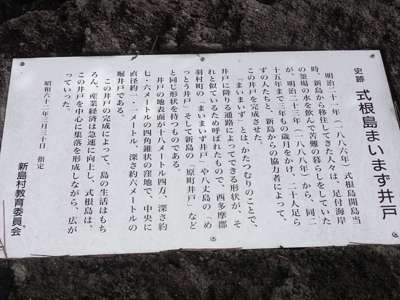 史跡 式根島まいまいず井戸
明治二十一年(一八八八年)式根島開島当
時、新島から移住してきた人々は、足付海岸
の釜場の水を飲んで苦難の暮らしをしていた
が、明治二十三年(一八九〇年)から、同二
十五年まで三ヶ年の歳をかけ、二十八人足ら
ずの人たちと、新島からの協力者によって、
この井戸を完成させた。
「まいまいず」とは、かたつむりのことで、
井戸に降りる通路によってできる形状が、そ
れと似ているため呼ばれたもので、西多摩郡
羽村町の「まいまいず井戸」や八丈島の「め
っとう井戸」そして新島の「原町井戸」など
と同じ形状を持つものである。
井戸の地表面が十八メートル四方、深さ約
七・六メートルの四角錐状の窪地で、中央に
直径約一・一メートル、深さ約六メートルの
堀井戸である。
この井戸の完成によって、島の生活はもち
ろん、産業経済は急速に向上し、式根島は、
この井戸を中心に集落を形成しながら、広が
っていった。
昭和六十二年三月三十日 指定
新島村教育委員会